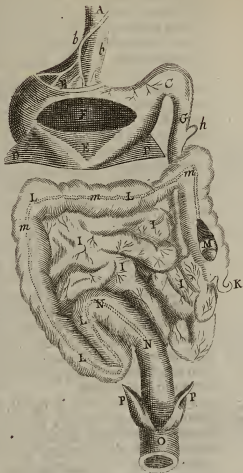 A
b b
B C
F G h
D E D
m
L m L
m I M
I I I K
N
L N
L
P P
O